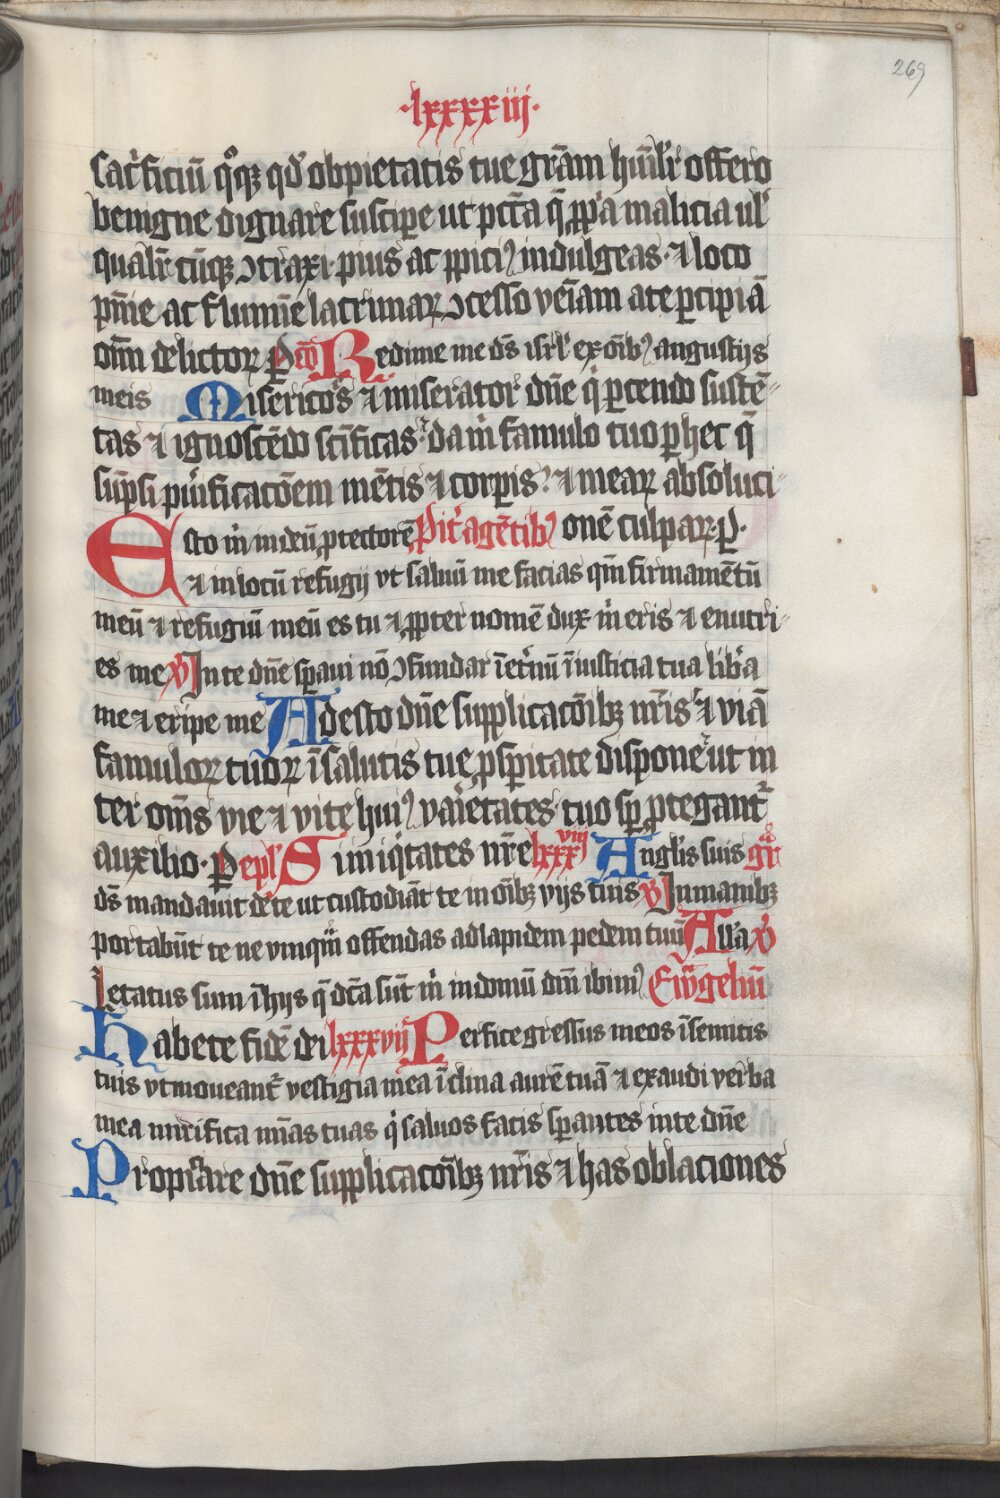 269
·lxxxxiij·
sacͥficiū qͦqꝫ qd' ob pietatis tue grām hūilr̓ offero
benigne dignare suscipe ut pctā q̄ ꝓpͥa malicia ul'
qualit̓ cūqꝫ ↄtraxi· pius ac ꝓpiciꝰ indulgeas· ⁊ loco
pn̄ie ac flumīe lacrimaꝝ ↄcesso veīam a te ꝑcipiā
om̄ delictoꝝ ꝑ Cō Redime me ds̄ isrl' ex oīb' angustijs
meis Misericoͬs ⁊ miserator dn̄e qͥ ꝑcendo sustē-
tas ⁊ ignoscēdo scīficas· da m̄ famulo tuo ꝑ hec q̄
sūpsi pu̓ificacōem mētis ⁊ corꝑis· ⁊ meaꝝ absoluci-
Esto m̓ in deū ꝓtectorē Pit̓ agētib' onē culpaꝝ· ꝑ·
⁊ in locū refugij vt saluū me facias qm̄ firmamētū
meū ⁊ refugiū meū es tu ⁊ ꝓpter nomē dux m̓ eris ⁊ enutri-
es me v̓ In te dn̄e sꝑaui nō ↄfundar īet̓nū ī iusticia tua lib̓a
me ⁊ eripe me Adesto dn̄e supplicacōibꝫ nr̄is ⁊ viā
famuloꝝ tuoꝝ ī salutis tue ꝓsꝑitate dispone ut in
ter om̄s vie ⁊ vite huiꝰ vaīetates· tuo sꝑ ꝓtegant᷑
auxilio· ꝑ epl' Si iniq̓tates nr̄e lxxxviij Anglis suis gͬͦ
ds̄ mandauit de te ut custodiāt te in oībꝫ vijs tuis v̓ In manibꝫ
portabūt te ne vnqͣm offendas ad lapidem pedem tuū All'a v̓
Letatus sum ī hijs q̄ dc̄a sūt m̓ in domū dn̄i ibimꝰ Ew̄geliū
Habete fidē dei lxxxvij Perfice gressus meos ī semitis
tuis vt moueant᷑ vestigia mea īclina aurē tuā ⁊ exaudi verba
mea mirifica mīas tuas qͥ saluos facis sꝑantes in te dn̄e
Propiciare dn̄e supplicacōibꝫ nr̄is ⁊ has oblaciones